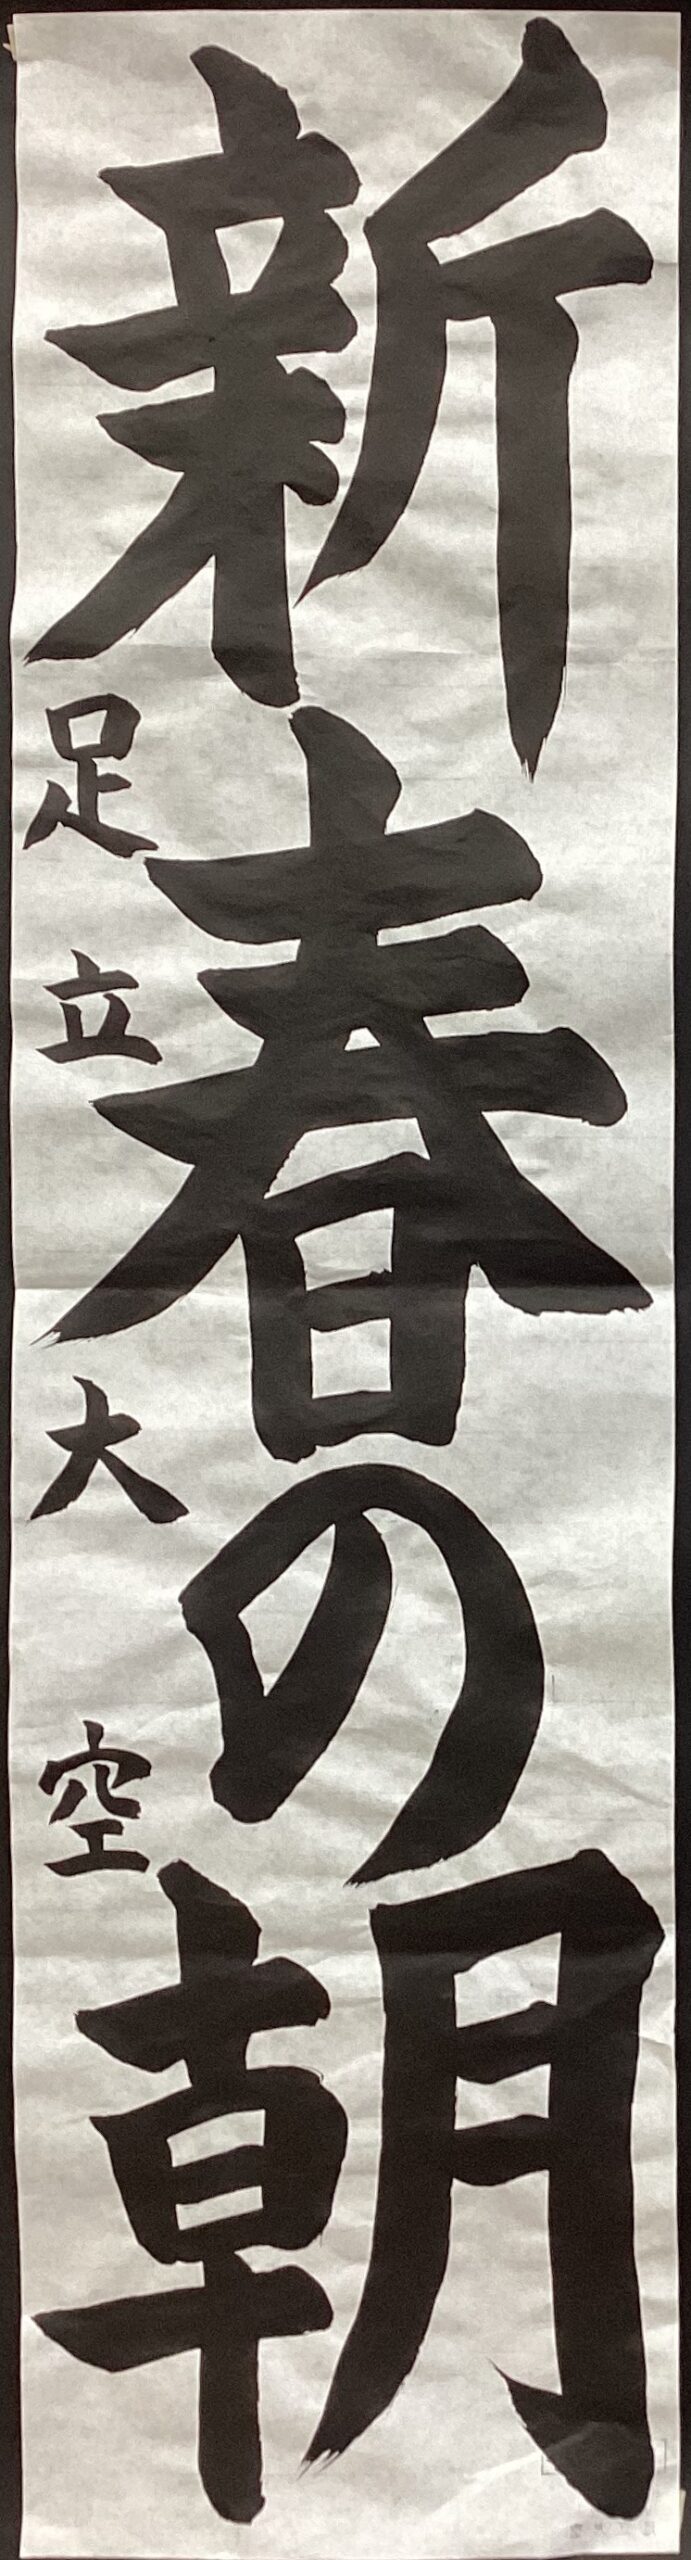 新春の朝
足立大空